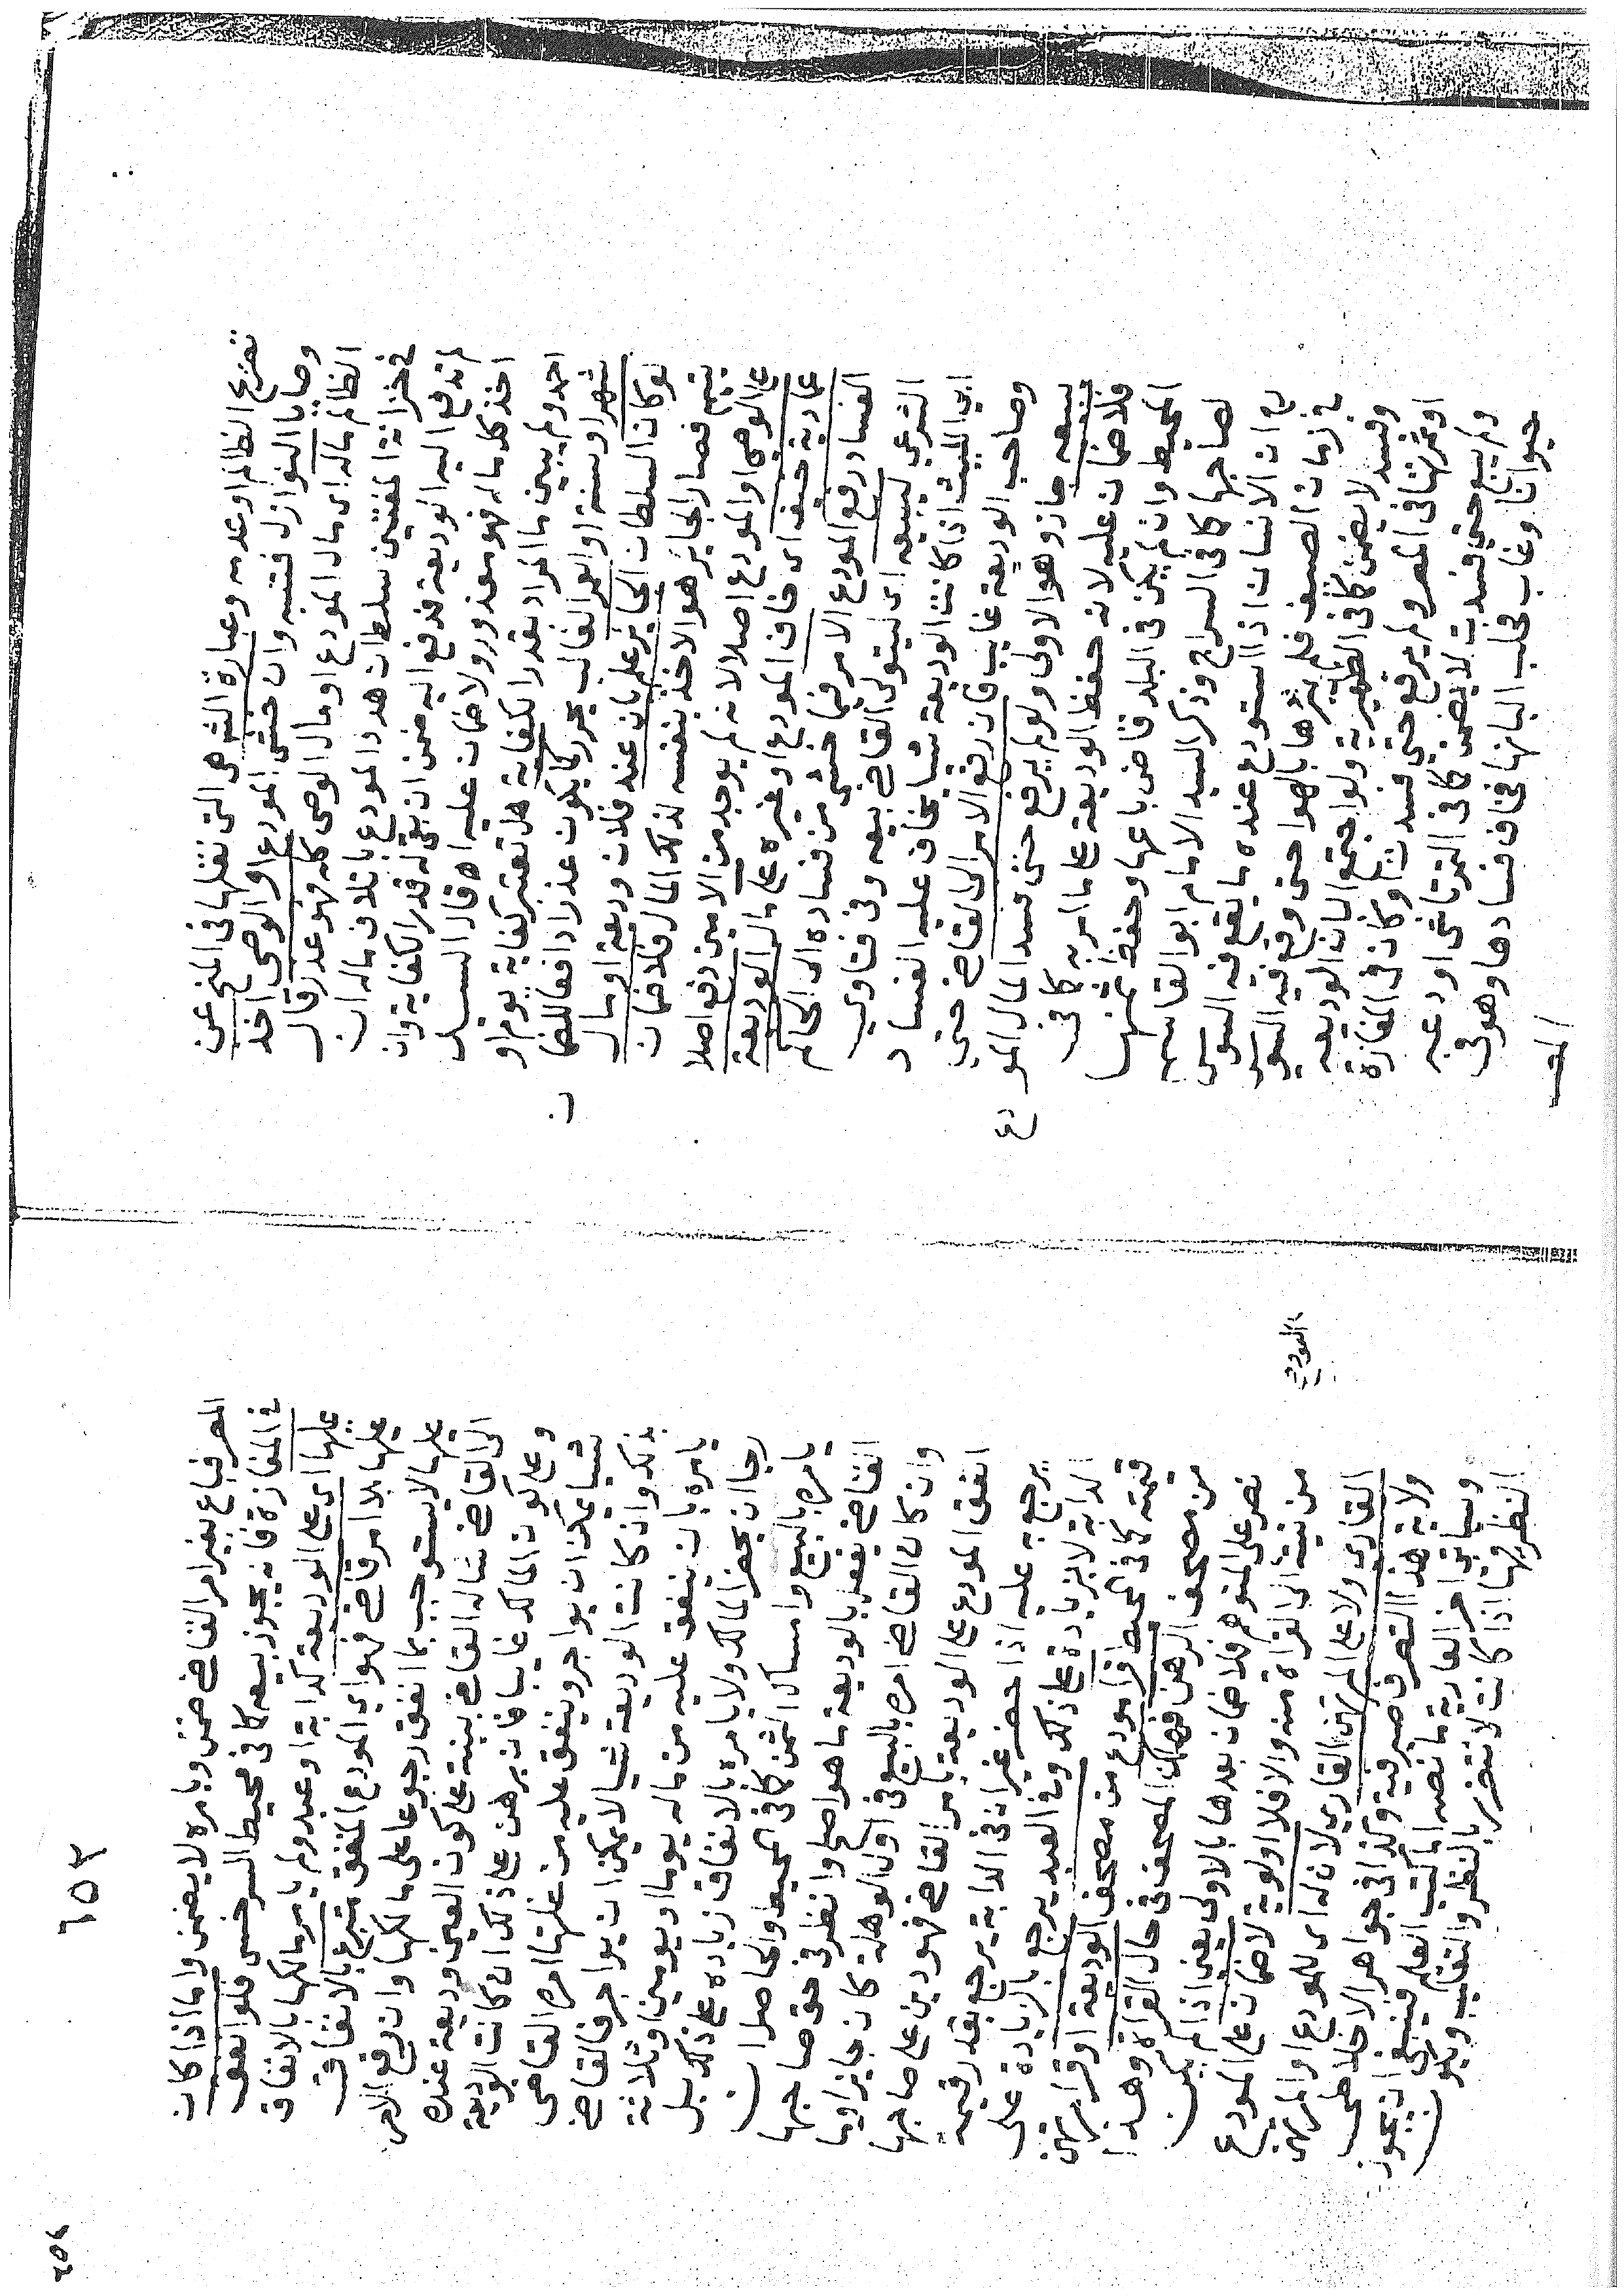 تضرع الظالم او عدمه وعبارة الشر هى التى نقلها فى المنح عن
وصايا النوازل فتنبه وان خشى المودع او الوصى اخذ
الظالم ماله اى مال المودع او مال الوصى كله فهو عذر قال
فى خزانة المفتين سلطان هدد المودع باتلاف ماله ان
لم تدفع اليه الوديعة فدفع اليه ضمن ان بقى له قدر الكفاية وان
اخذ كل ماله فهو معذور ولا ضمان عليه اه قال السيد
احمد ولم يبين ما المراد بقدر الكفاية هل تعتبر كفاية يوم او
شهر او سنة او العمر الغالب يحرر كما يكون عذرا دافعا للضما ن
لو كان السلطان الجاير علم بان عند فلان وديعة او مال
يتيم فصار الجاير هو الاخذ بنفسه لذلك المال فلا ضمان
على الوصى او المودع اصلا لانه لم يوجد من الامين دفع اصلا
عمادية خيف اى خاف المودع او غيره على مال الوديعة
الفساد رفع المودع الامر فيما خشى من فساده الى الحاكم
الشرعى ليبيعه اى ليتولى القاضى بيعه وفى فتاوى
ابى الليث اذا كانت الوديعة شيا يخاف عليه الفساد
وصاحب الوديعة غايب فان رفع الامر الى القاضى حتى
يبيعه جاز وهو الاولى ولو لم يرفع حتى فسد المال المو دع
فلا ضمان عليه لانه حفظ الوديعة على ما امر به كما فى
المحيط وان لم يكن فى البلد قاض باعها وحفظ ثمنها
لصاحبها كما فى السراج وذكر السيد الامام ابو القاسم
رح ان الانسان اذا استودع عنده ما يقع فيه السوس
فى زمان الصيف فلم يبردها بالهوا حتى وقع فيه السوس
وفسد لا يضمن كما فى الظهيرية ولو اجتمع البان الوديعه
او ثمرتها فى المصر ولم يرفع حتى فسدت او كان فى المفازة
ولم يبع حتى فسدت لا يضمن كما فى التمرتاشى اودعه
حيوانا وغاب فحلب البانها فخاف فسادها وهو فى
المصر
٦٥٢
المصر فباع بغير امر القاضى ضمن وبامره لا يضمن واما اذا كان
فى المفازة فانه يجوز بيعه كما فى محيط السرخسى فلو انفق
عليها اى على الوديعة كدابة او عبد ولم يامر مالكها بالانفاق
عليها بلا امر قاض فهو اى المودع المنفق متبرع بالانفاق
عليها لا يستوجب بما انفق رجوعا على مالكها وان رفع الامر
الى القاضى ساله القاضى بينة على كون العين وديعة عنده
وعلى كون المالك غايبا فان برهن على ذلك ان كانت الوديعة
شيا يمكن ان يواجر وينفق عليه من غلتها امره القاضى
بذلك وان كانت الوديعة شيا لا يمكن ان يواجر فالقاضى
يامره بان ينفق عليه من ماله يوما او يومين او ثلاثة
رجا ان يحضر المالك ولا يامره بالانفاق زياده على ذلك بل
يامره بالبيع وامساك الثمن كما فى المحيط والحاصل ان
القاضى يفعل بالوديعة ما هو اصلح وانظر فى حق صاحبها
وان كان القاضى امره بالبيع فى اول الوهلة كان جايزا وما
انفق المودع على الوديعة بامر القاضى فهو دين على صاحبها
يرجع به عليه اذا حضر غير ان فى الدابة يرجع بقدر قيمة
الدابة لا بزيادة على ذلك وفى العبد يرجع بالزيادة على
قيمته كما فى المحيط قرا مودع من مصحف الوديعة او قرا مرتهن
من مصحف الرهن فهلك المصحف فى حال القراة وهذا
نص على المتوهم فلا ضمان بعدها بالاولى يعنى اذا لم يكن
من نيته الى القراة منه والا فلا اولوية لا ضمان على المودع
القارى ولا على المرتهن القارى لان له اى للمودع او المرتهن
ولاية هذا التصرف صيرفية وكذا فى جواهر الاخلاطى
وسياتى اخر العارية ما نصه اما كتب العلم فينبغى ان يجوز
النظر فيها اذا كانت لا تتضرر بالنظر والتقليب ويكون